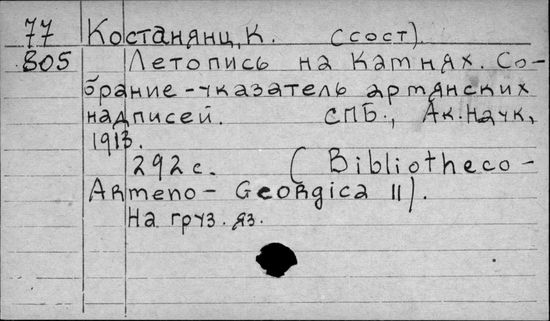 77 Костанянц, К. (сост).
805 Летопись на Камнях. Со-
брание-указатель армянских
надписей. СПБ., Ак. наук,
1913.
292 с. (Bibliotheco-
Armeno-Georgica II).
На груз. яз.